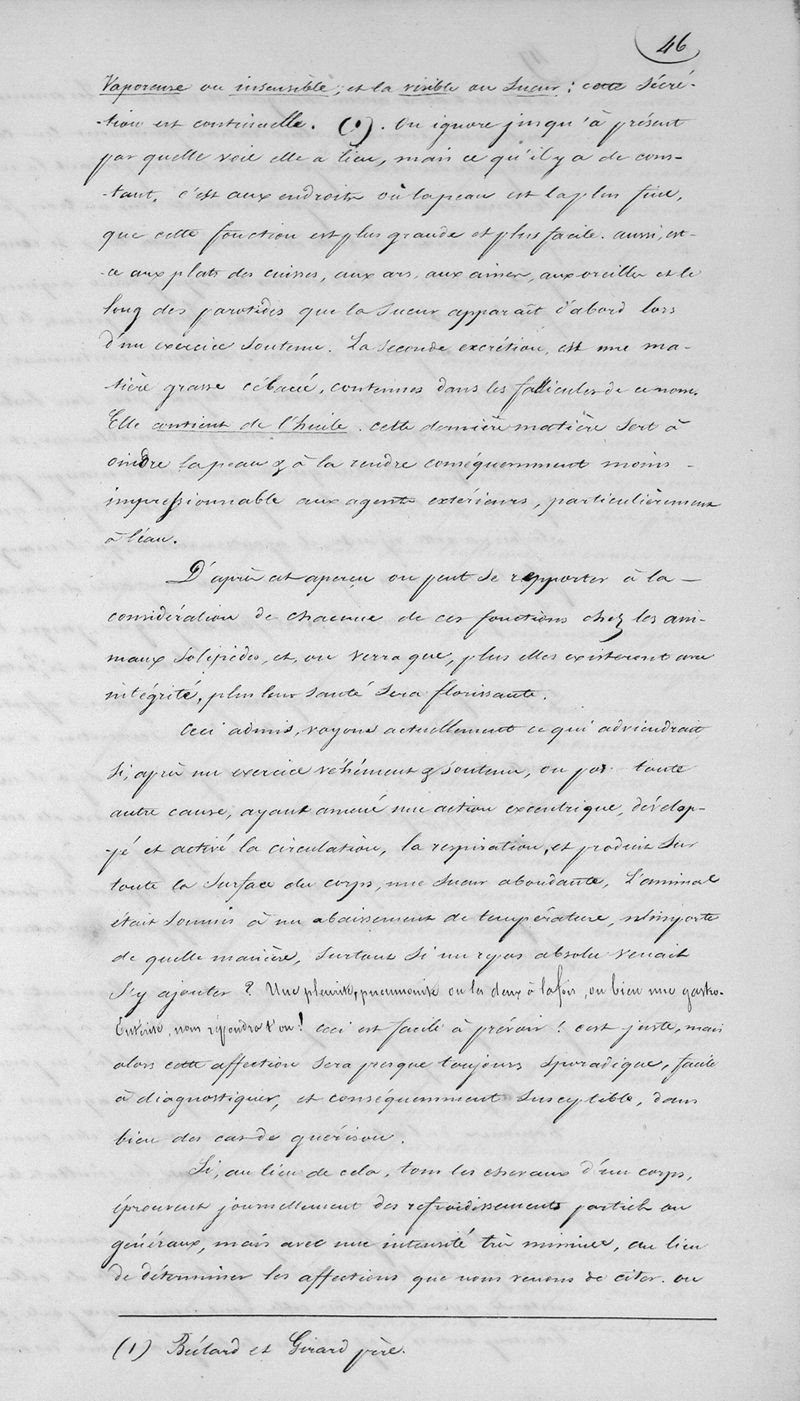 46
Vaporeuse ou insensible, et la visible ou Sueur; cette sécré-
-tion est continuelle. (1). On ignore jusqu'à présent
par quelle voie elle a lieu, mais ce qu'il y a de cons-
-tant, c'est aux endroits où la peau est la plus fine,
que cette fonction est plus grande et plus facile. aussi, est-
-ce aux plats des cuisses, aux ars, aux aines, aux oreilles et le
long des parotides que la sueur apparaît d'abord lors
d'un exercice soutenu. La seconde excrétion, est une ma-
-tière grasse cébacée, contenues dans les follicules de ce nom.
Elle contient de l'huile. cette dernière matière sert à
oindre la peau & à la rendre conséquemment moins -
impressionnable aux agents extérieurs, particulièrement
à l'eau.
D'après cet aperçu on peut se rapporter à la —
considération de chacune de ces fonctions chez les ani-
maux solipèdes, et, on verra que, plus elles existeront avec
intégrité, plus leur santé sera florissante.
Ceci admis, voyons actuellement ce qui adviendrait
si, après un exercice véhément & soutenu, ou par toute
autre cause, ayant amené une action excentrique, dévelop-
-pé et activé la circulation, la respiration, et produit sur
toute la surface du corps, une sueur abondante, L'animal
était soumis à un abaissement de température, n'importe
de quelle manière, surtout si un repos absolu venait
s'y ajouter ? Une pleurite, pneumonite ou les deux à la fois, ou bien une gastro-
Entérite, nous répondra t'on! ceci est facile à prévoir! c'est juste, mais
alors cette affection sera presque toujours sporadique, facile
à diagnostiquer, et conséquemment susceptible, dans
bien des cas de guérison.
Si, au lieu de cela, tous les chevaux d'un corps,
éprouvent journellement des refroidissements partiels ou
généraux, mais avec une intensité très minime, au lieu
de déterminer les affections que nous venons de citer. ou
(1) Béclard et Girard père.